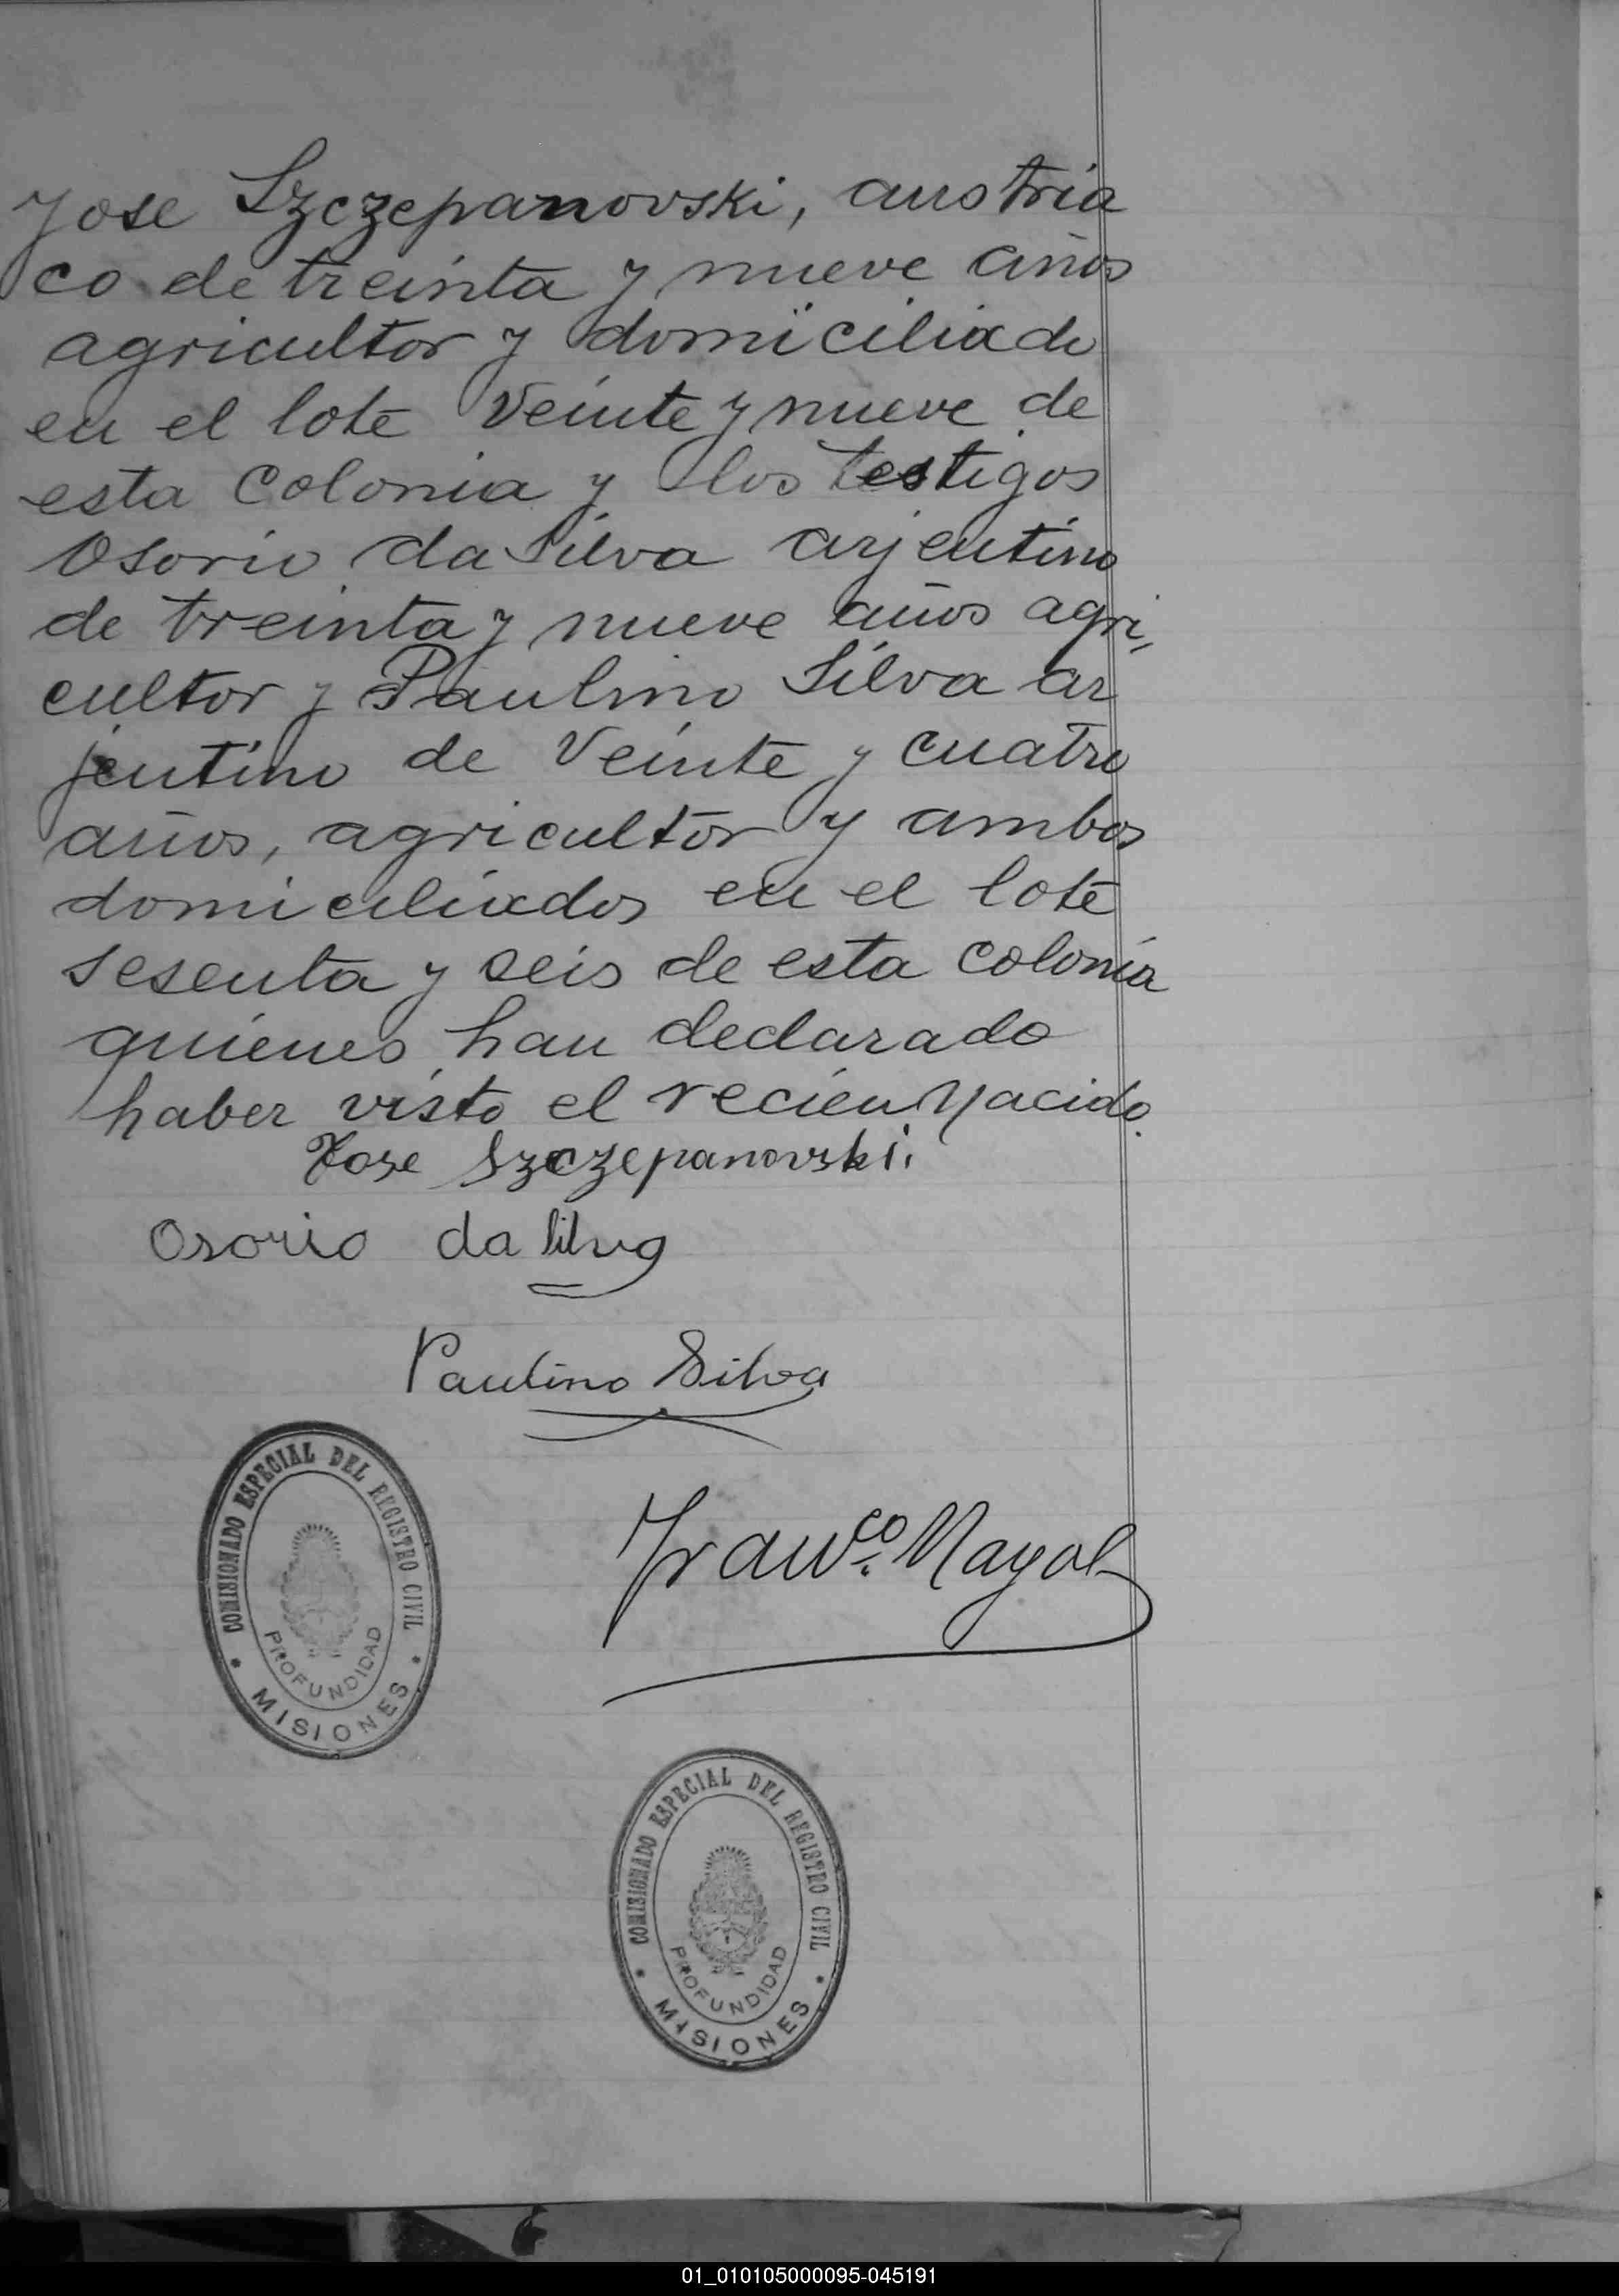 Jose Szczepanovski, austria
co de treinta y nueve años
agricultor y domiciliado
en el lote veinte y nueve de
esta colonia y los testigos
Osorio da Silva arjentino
de treinta y nueve años agri,,
cultor y Paulino Silva ar
jentino de veinte y cuatro
años, agricultor y ambos
domiciliados en el lote
sesenta y seis de esta colonia
quienes han declarado
haber visto el recien nacido.
Jose Szczepanovski.
Osorio da Silva
Paulino Silva
COMISIONADO ESPECIAL DEL REGISTRO CIVIL
PROFUNDIDAD
* MISIONES *
Franco. Mayol
COMISIONADO ESPECIAL DEL REGISTRO CIVIL
PROFUNDIDAD
* MISIONES *
01_010105000095-045191